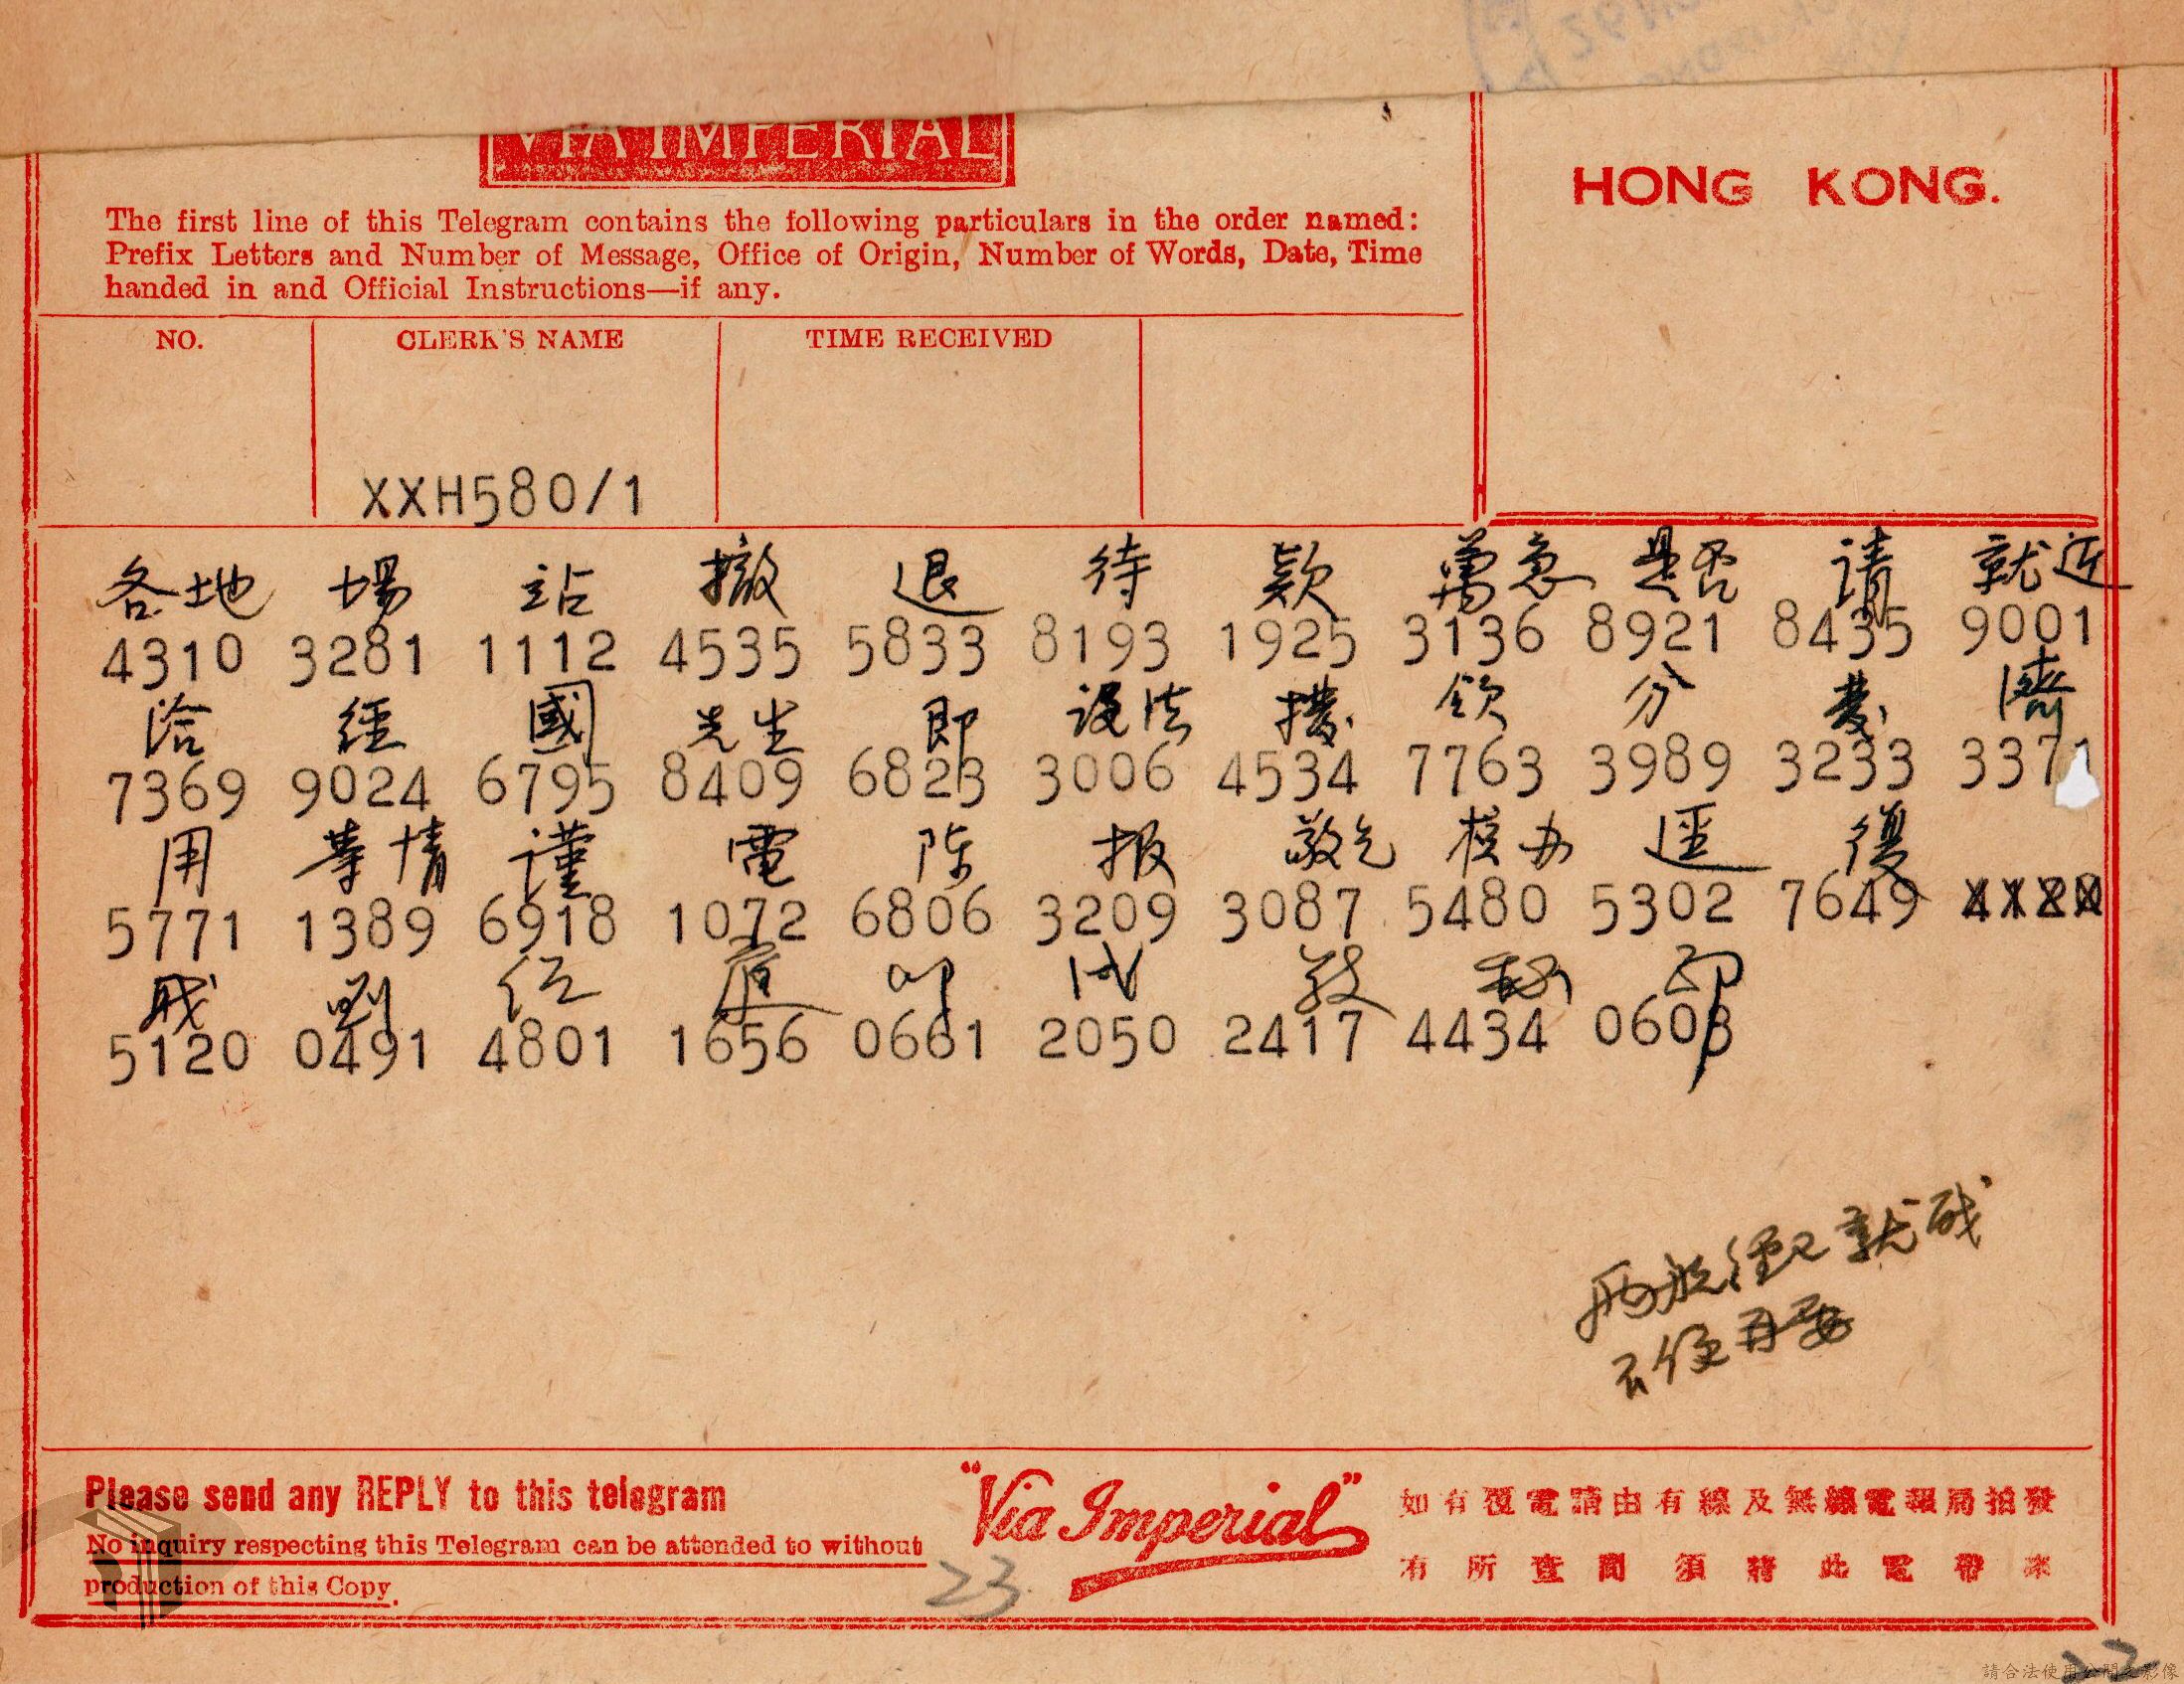 VIA IMPERIAL
HONG KONG.
The first line of this Telegram contains the following particulars in the order named:
Prefix Letters and Number of Message, Office of Origin, Number of Words, Date, Time
handed in and Official Instructions—if any.
NO. CLERK'S NAME TIME RECEIVED
XXH580/1
各地 場 站 撤 退 待 款 萬急 是否 请 就近
4310 3281 1112 4535 5833 8193 1925 3136 8921 8435 9001
洽 經 國 先生 即 设法 撥 飭 分 發 濟
7369 9024 6795 8409 6823 3006 4534 7763 3989 3233 3371
用 等情 謹 電 陈 报 敬乞 核办 逕 復
5771 1389 6918 1072 6806 3209 3087 5480 5302 7649
職 劉 任 叩
5120 0491 4801 1656 0661 2050 2417 4434 0603
Please send any REPLY to this telegram
"Via Imperial"
如有覆電請由有線及無線電報局拍發
No inquiry respecting this Telegram can be attended to without
有所查問須將此電帶來
production of this Copy.
23
22
請合法使用公開之影像